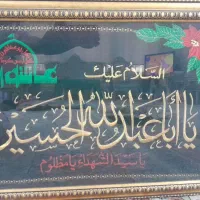 السلام عليك
يا أبا عبد الله الحسين
يا سيد الشهداء يا مظلوم